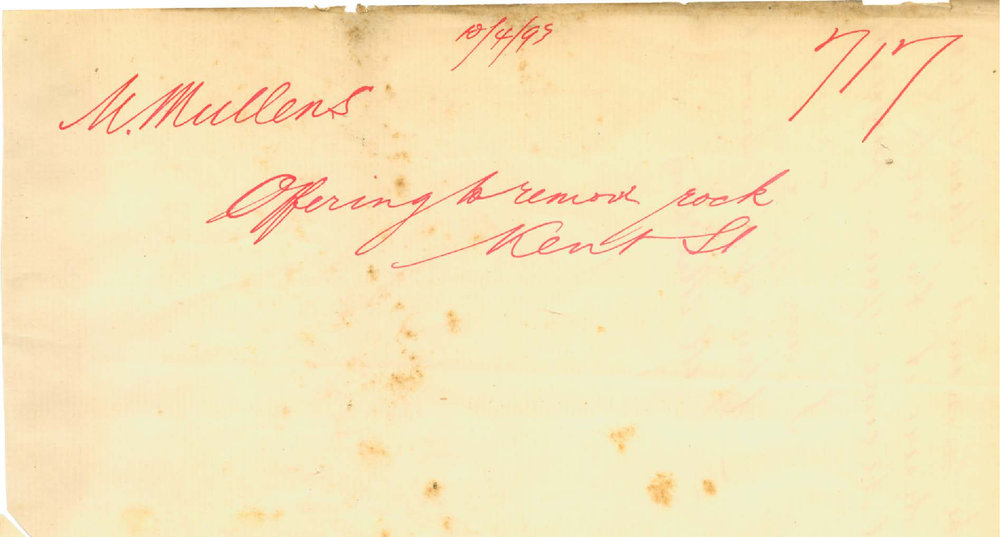 10/4/93
717
M. Mullens
Offering to remove rock
Kent St